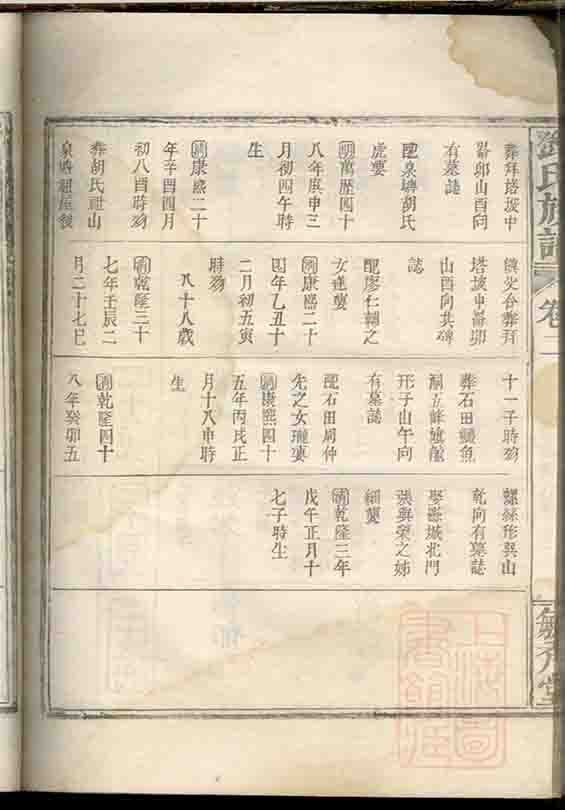 氏族譜
卷二
葬拜塔坡中
畱卯山酉向
有墓誌
配泉塘胡氏
虎妻
明萬歷四十
八年庚申三
月初四午時
生
清康熙二十
年辛酉四月
初八酉時歿
葬胡氏祖山
泉塘祖屋後
與父合葬拜
塔坡中畱卯
山酉向共碑
誌
配廖仁輔之
女蓮妻
清康熙二十
四年乙丑十
二月初五寅
時歿
八十八歲
清乾隆三十
七年壬辰二
月二十七巳
十一子時歿
葬石田鰱魚
洞五峰
形子山午向
有墓誌
配石田周仲
先之女璉妻
清康熙四十
五年丙戌正
月十八申時
生
清乾隆四十
八年癸卯五
螺絲形巽山
乾向有墓誌
娶縣城北門
張興榮之姊
細妻
清乾隆三年
戊午正月十
七子時生
上海圖書館藏